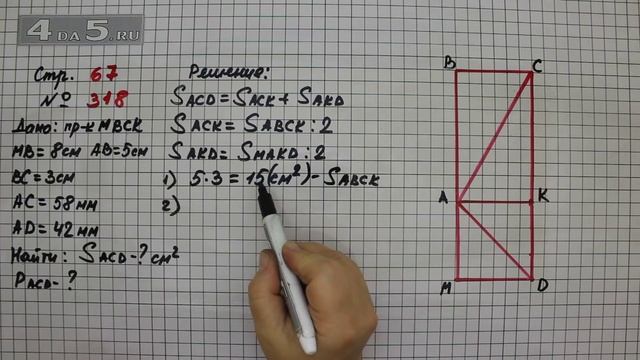 4 DA 5.RU
Стр. 67
№ 318
Дано: пр-к МВСК
МВ = 8см АВ = 5см
ВС = 3см
АС = 58 мм
АD = 42 мм
Найти: SACD - ? см²
PACD - ?
Решение:
SACD = SACK + SAKD
SACK = SABCK : 2
SAKD = SMAKD : 2
1) 5·3 = 15(см²) - SABCK
2)
B C
A K
M D